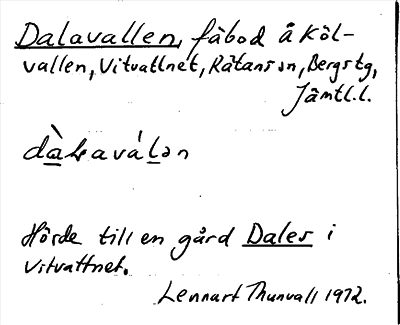 Dalavallen, fäbod å Köl-
vallen, Vitvattnet, Rätans sn, Bergs tg,
Jämtl.l.
Hörde till en gård Dales i
Vitvattnet.
Lennart Thunvall 1972.